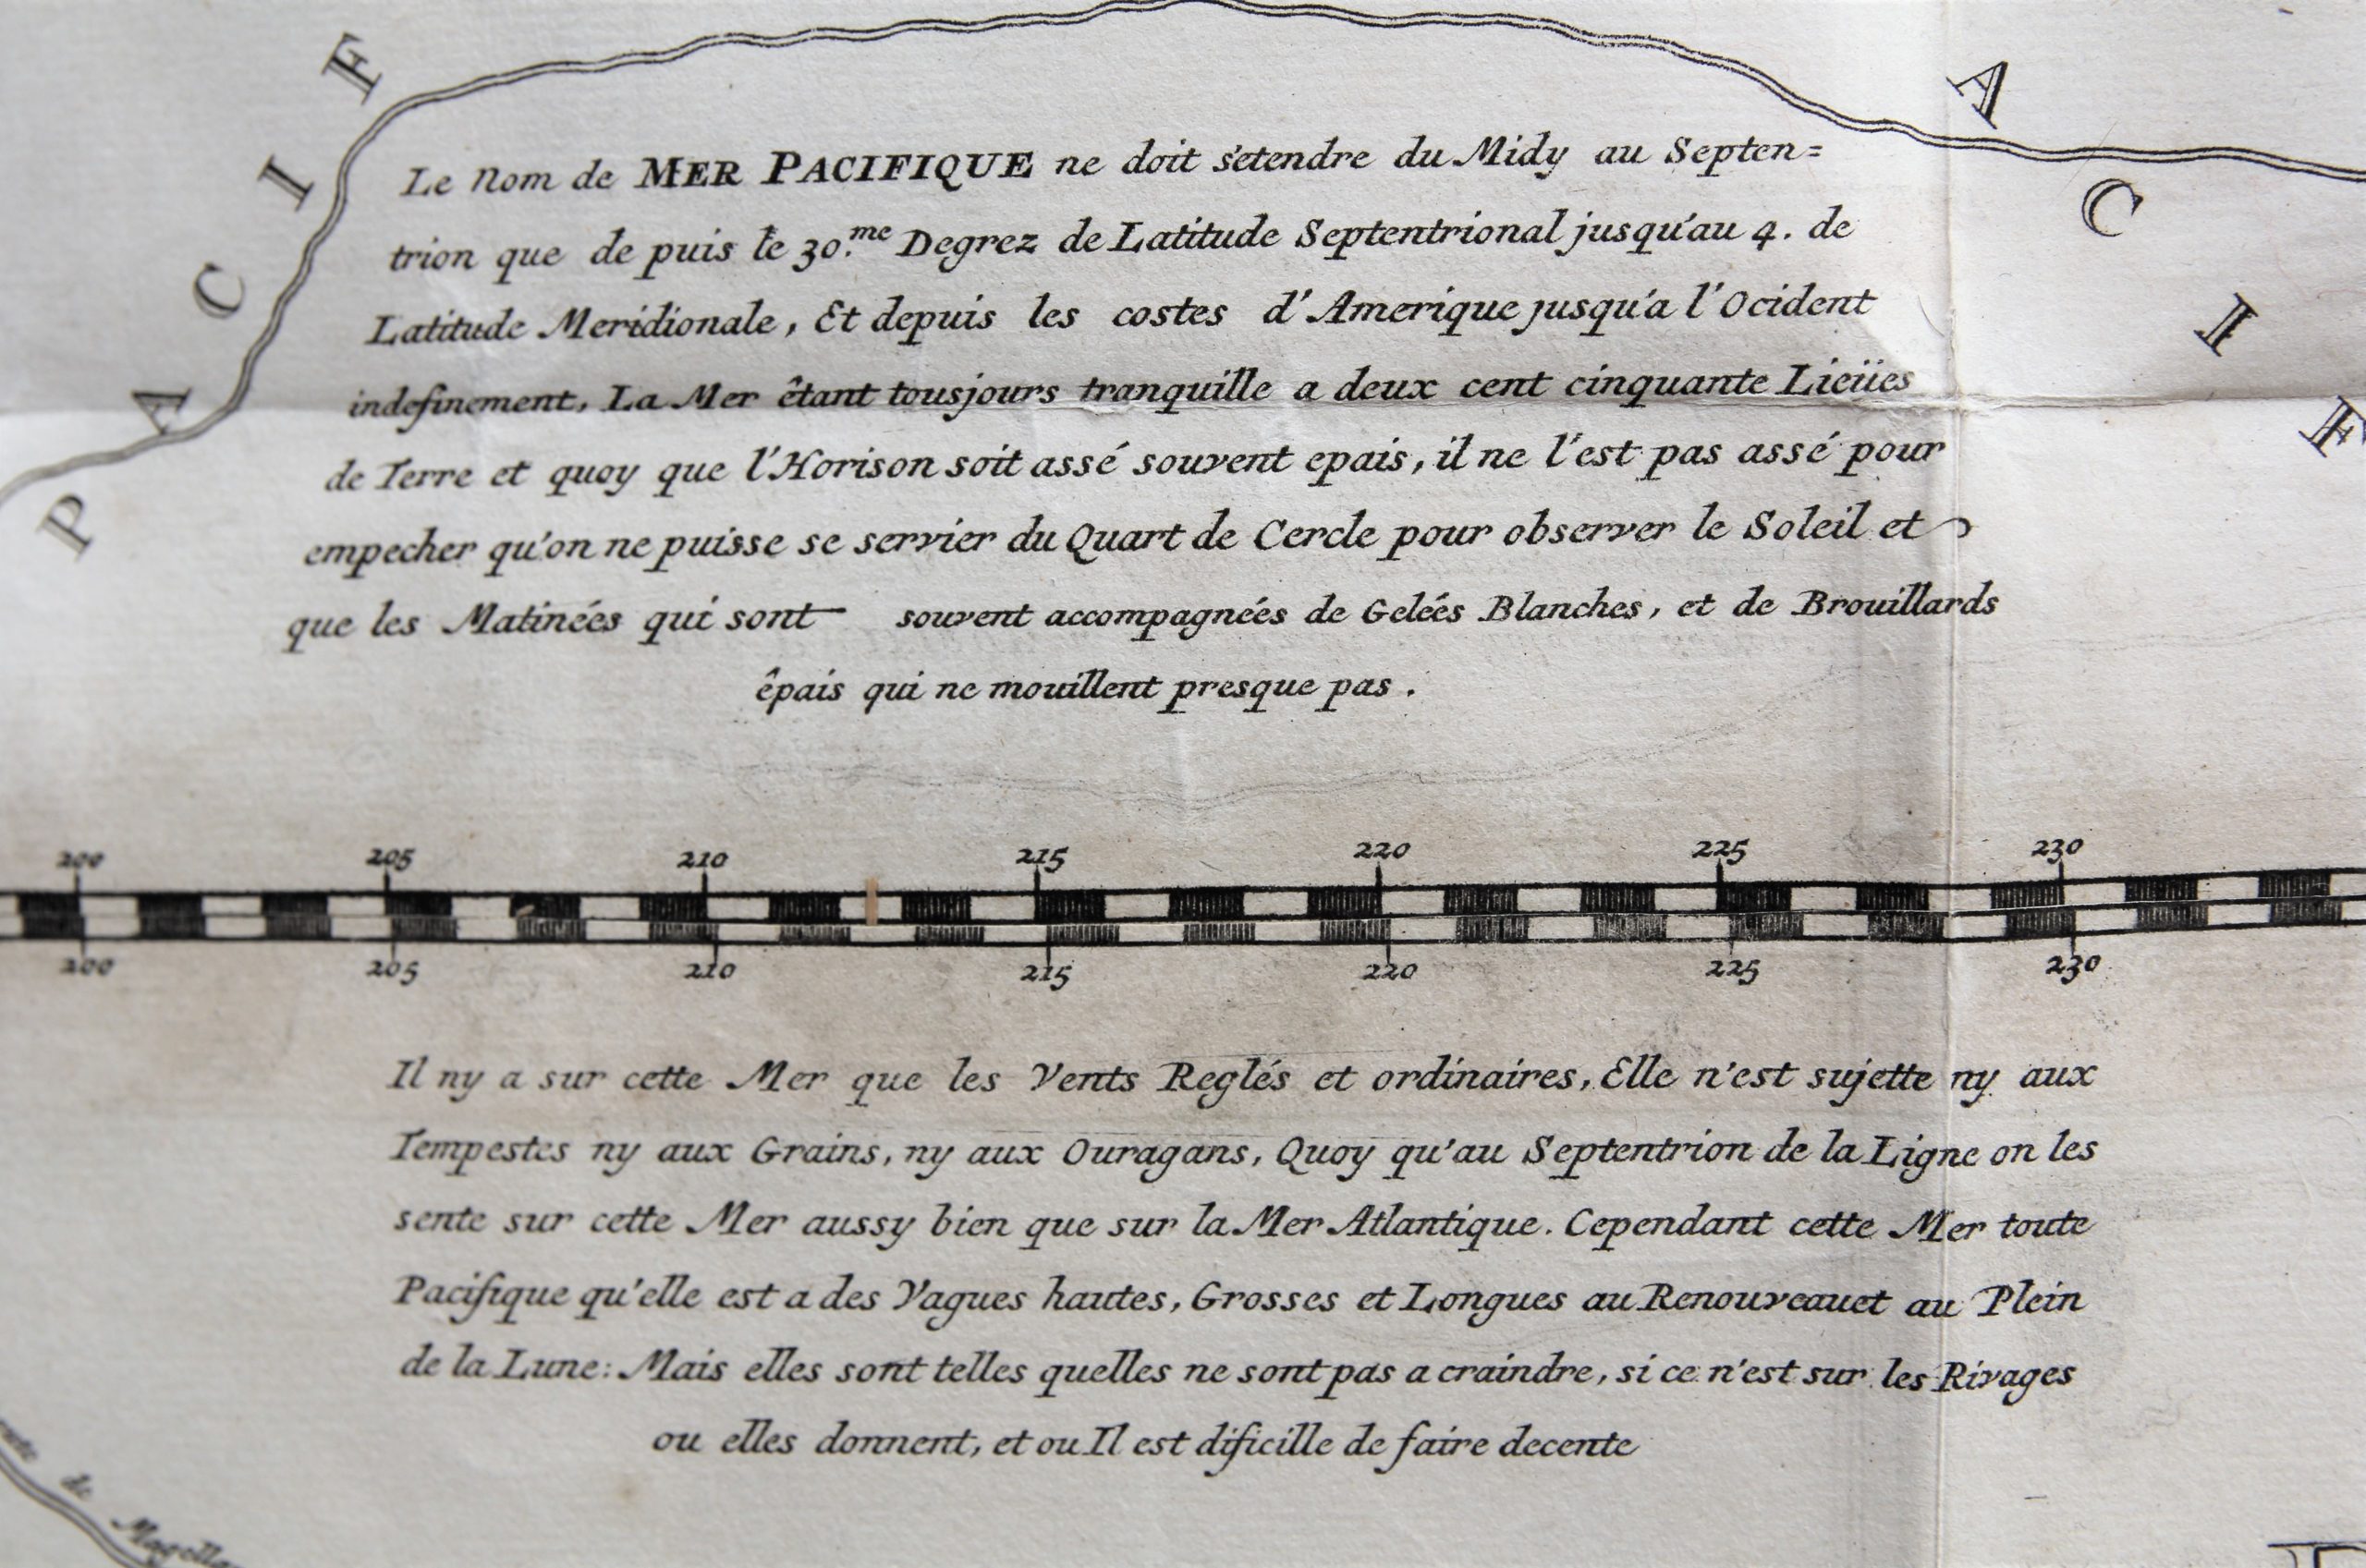 P A C I F
A C I F
Le Nom de MER PACIFIQUE ne doit s'etendre du Midy au Septen=
trion que de puis le 30.me Degrez de Latitude Septentrional jusqu'au 4. de
Latitude Meridionale, Et depuis les costes d'Amerique jusqu'a l'Ocident
indefinement, La Mer êtant tousjours tranquille a deux cent cinquante Lieües
de Terre et quoy que l'Horison soit assé souvent epais, il ne l'est pas assé pour
empecher qu'on ne puisse se servier du Quart de Cercle pour observer le Soleil et
que les Matinées qui sont souvent accompagnées de Gelées Blanches, et de Brouillards
êpais qui ne mouillent presque pas.
200 205 210 215 220 225 230
200 205 210 215 220 225 230
Il ny a sur cette Mer que les Vents Reglés et ordinaires, Elle n'est sujette ny aux
Tempestes ny aux Grains, ny aux Ouragans, Quoy qu'au Septentrion de la Ligne on les
sente sur cette Mer aussy bien que sur la Mer Atlantique. Cependant cette Mer toute
Pacifique qu'elle est a des Vagues hautes, Grosses et Longues au Renouveauet au Plein
de la Lune: Mais elles sont telles quelles ne sont pas a craindre, si ce n'est sur les Rivages
ou elles donnent, et ou Il est dificille de faire decente
de Magellan